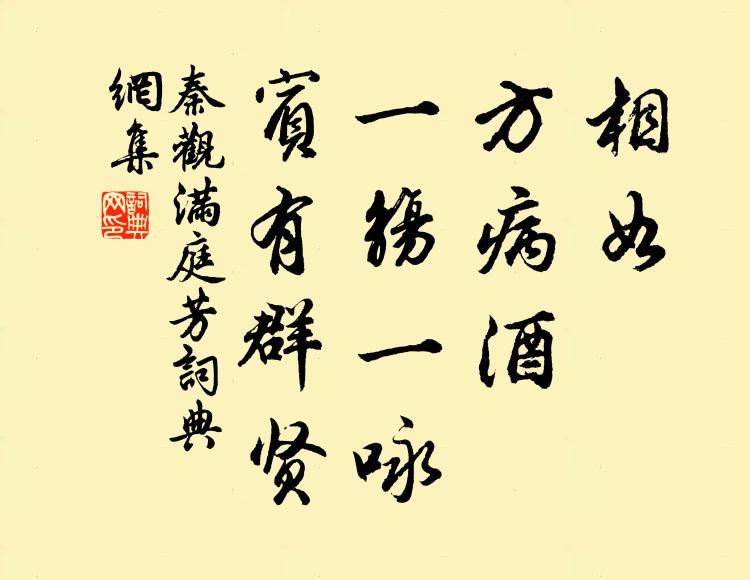 相如
方病酒
一觞一咏
賓有群贤
秦觀滿庭芳詞典
網集
詞典
网印